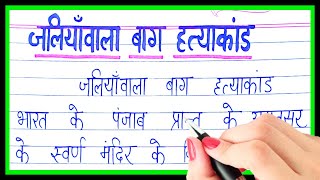 जलियाँवाला बाग हत्याकांड
जलियाँवाला बाग हत्याकांड
भारत के पंजाब प्रान्त के
के स्वर्ण मंदिर के